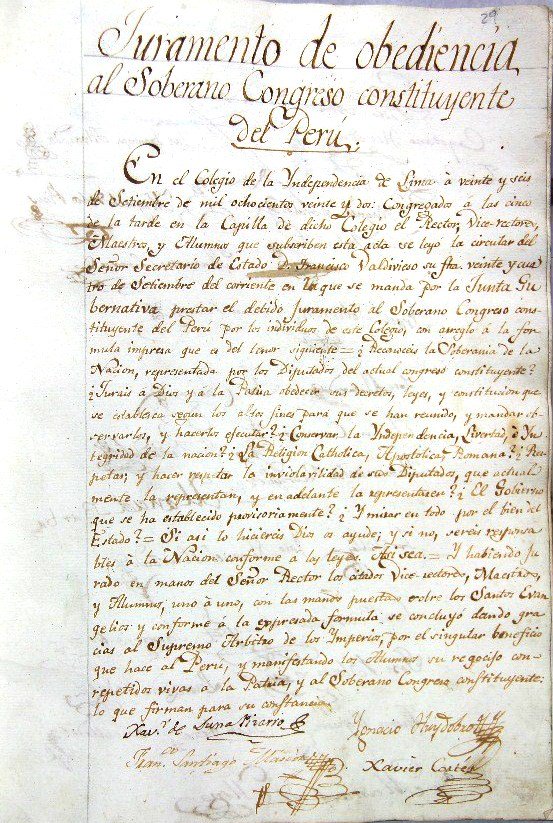 29
Juramento de obediencia
al Soberano Congreso constituyente
del Perú.
En el Colegio de la Yndependencia de Lima à veinte y seis
de Setiembre de mil ochocientos veinte y dos: Congregados à las cinco
de la tarde en la Capilla de dicho Colegio el Rector, Vice-rectores,
Maestros, y Alumnos que subscriben esta acta se leyó la circular del
Señor Secretario de Estado D. Francisco Valdivieso su fha. veinte y cua-
tro de Setiembre del corriente en la que se manda por la Junta Gu-
bernativa prestar el debido Juramento al Soberano Congreso cons-
tituyente del Perú por los individuos de este Colegio, con arreglo à la fór-
mula impresa que es del tenor siguiente = ¿Reconoceis la Soberania de la
Nacion, representada por los Diputados del actual congreso constituyente?
¿Jurais à Dios y à la Patria obedecer sus decretos, leyes, y constitucion que
se establesca segun los altos fines para que se han reunido, y mandar ob-
servarlos, y hacerlos ejecutar? ¿Conservar la Yndependencia, Libertad, è Yn-
tegridad de la nacion? ¿La Religion Catholica, Apostolica, Romana? ¿Res-
petar, y hacer respetar la inviolavilidad de sus Diputados, que actual-
mente la representan, y en adelante la representaren? ¿El Gobierno
que se ha establecido provisoriamente? ¿Y mirar en todo por el bien del
Estado? = Si asi lo hiciereis Dios os ayude; y si no, sereis responsa-
bles à la Nacion conforme a las leyes. Asi sea. = Y habiendo ju-
rado en manos del Señor Rector los citados Vice-rectores, Maestros,
y Alumnos, uno à uno, con las manos puestas sobre los Santos Evan-
gelios y conforme à la expresada formula, se concluyó dando gra-
cias al Supremo Arbitro de los Imperios, por el singular beneficio
que hace al Perú, y manifestando los Alumnos su regocijo con
repetidos vivas à la Patria, y al Soberano Congreso constituyente:
lo que firman para su constancia
Xav.r de Luna Pizarro
Ygnacio Huydobro
Fran.co Santiago
Xavier Cortés